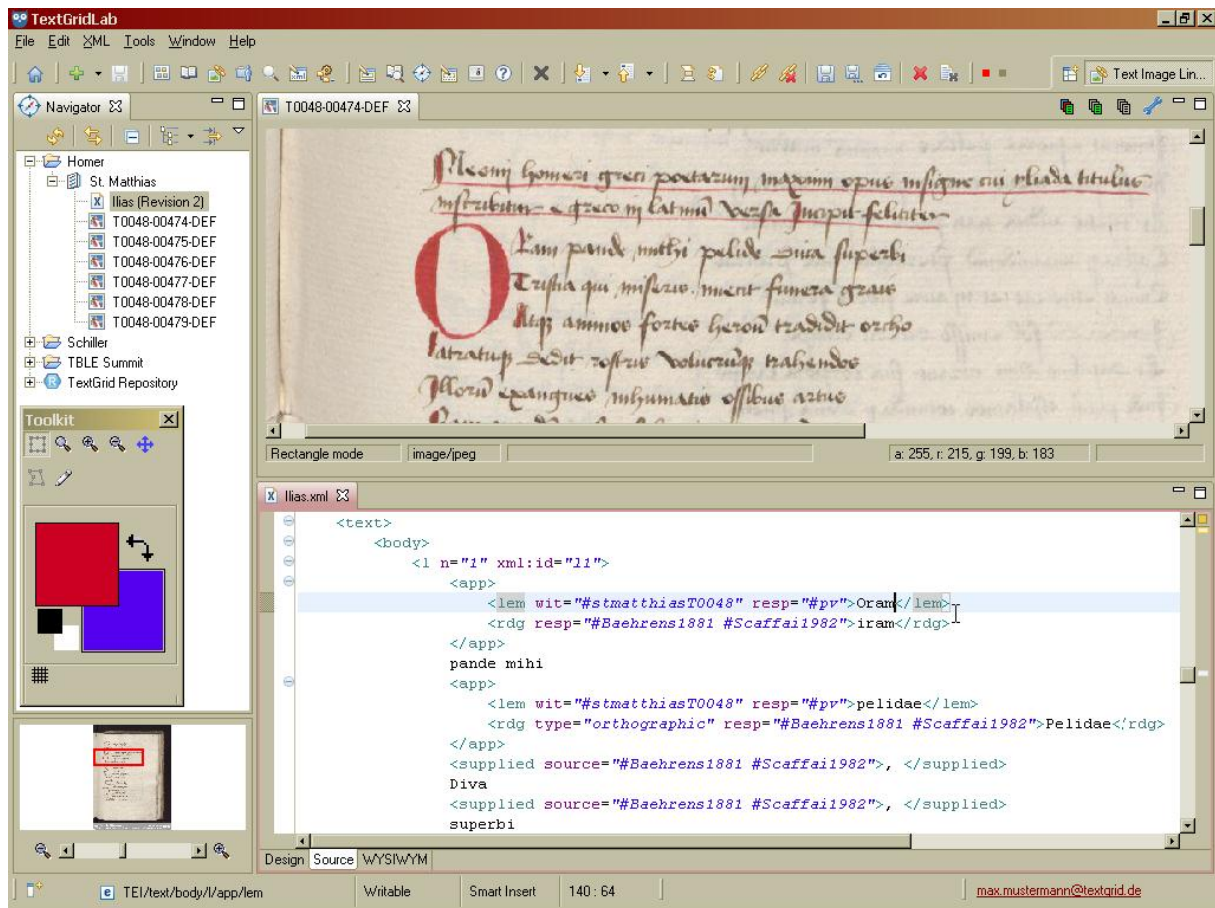 TextGridLab
File Edit XML Tools Window Help
Text Image Lin...
Navigator
Homer
St. Matthias
Ilias (Revision 2)
T0048-00474-DEF
T0048-00475-DEF
T0048-00476-DEF
T0048-00477-DEF
T0048-00478-DEF
T0048-00479-DEF
Schiller
TBLE Summit
TextGrid Repository
Toolkit
T0048-00474-DEF
homeri greci poetarum maximi opus insigne cui yliada titulus
inscribitur e greco in latinū versa Incipit feliciter
Oram pande michi pelide Diva superbi
Tristia qui miseris iniecit funera grais
Atqꝫ animos fortes heroū tradidit orcho
latratuqꝫ dedit rostris volucrūqꝫ trahendos
Illorū exangues inhumatis ossibus artus
Rectangle mode image/jpeg a: 255, r: 215, g: 199, b: 183
Ilias.xml
<text>
<body>
<l n="1" xml:id="l1">
<app>
<lem wit="#stmatthiasT0048" resp="#pv">Oram</lem>
<rdg resp="#Baehrens1881 #Scaffai1982">iram</rdg>
</app>
pande mihi
<app>
<lem wit="#stmatthiasT0048" resp="#pv">pelidae</lem>
<rdg type="orthographic" resp="#Baehrens1881 #Scaffai1982">Pelidae</rdg>
</app>
<supplied source="#Baehrens1881 #Scaffai1982">, </supplied>
Diva
<supplied source="#Baehrens1881 #Scaffai1982">, </supplied>
superbi
Design Source WYSIWYM
TEI/text/body/l/app/lem Writable Smart Insert 140 : 64 max.mustermann@textgrid.de